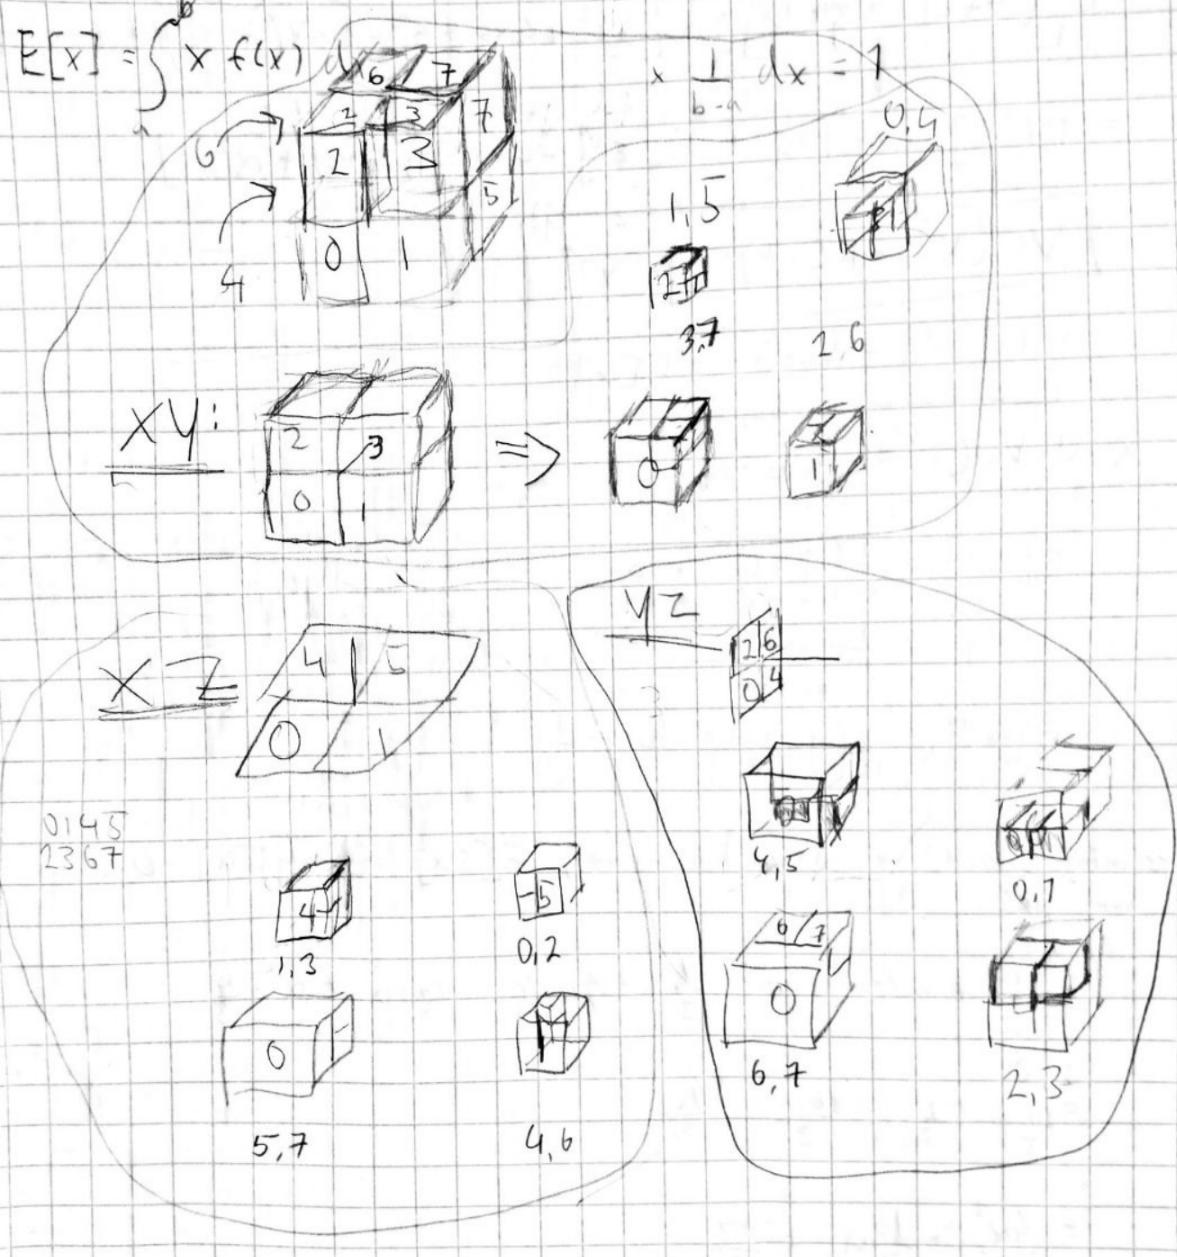 E[x] = ∫ₐᵇ x f(x) dx
x 1/(b-a) dx = 1
6 7
2 3 7
6 2 3
5
4 0 1
0,4
1,5
2
3,7 2,6
XY: 2 3 ⇒
0 1 0 1
XZ 4 5
0 1
YZ 2 6
0 4
0145
2367
4 5
1,3 0,2
0
5,7 4,6
4,5 0,1
6 7
0
6,7 2,3